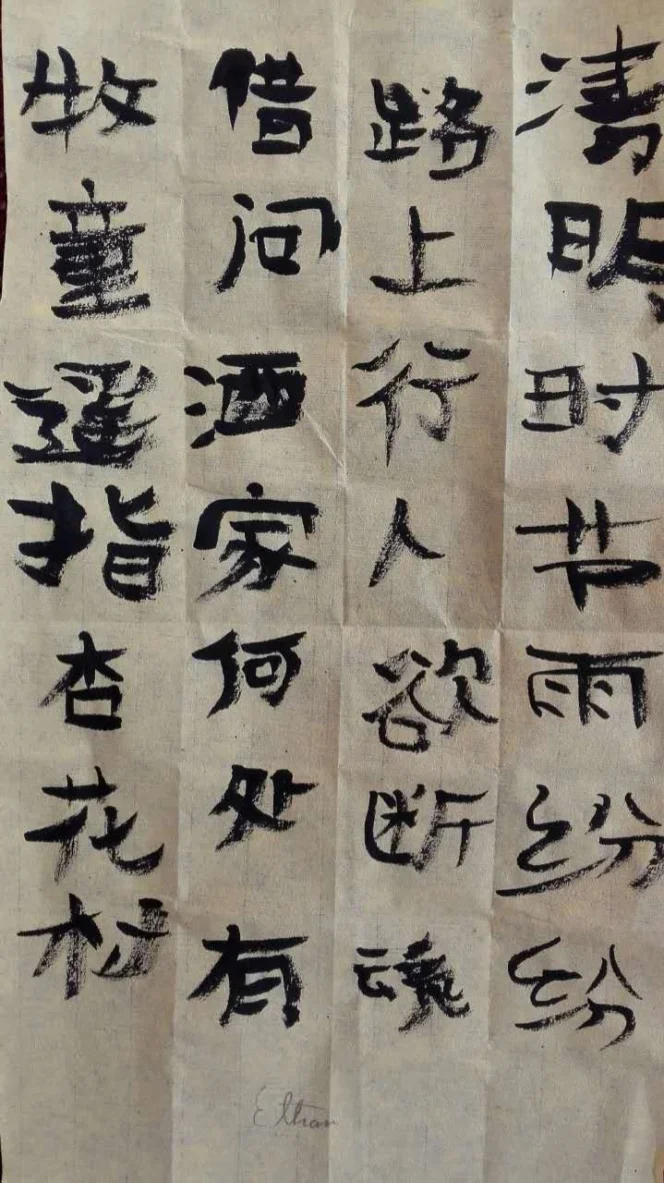 清明时节雨纷纷
路上行人欲断魂
借问酒家何处有
牧童遥指杏花村
Ethan